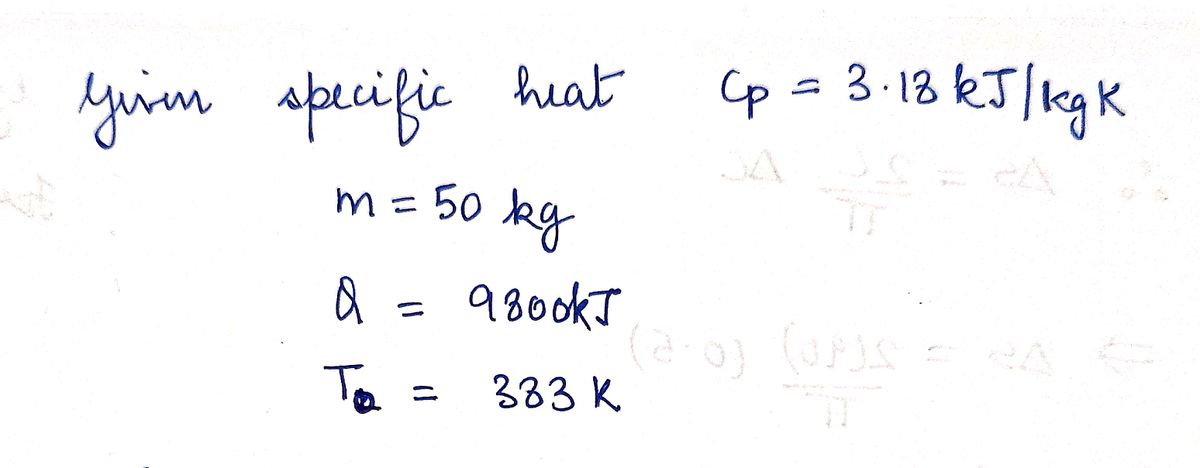 Given specific heat Cp = 3.18 kJ/kg K
m = 50 kg
Q = 9800kJ
T = 383 K